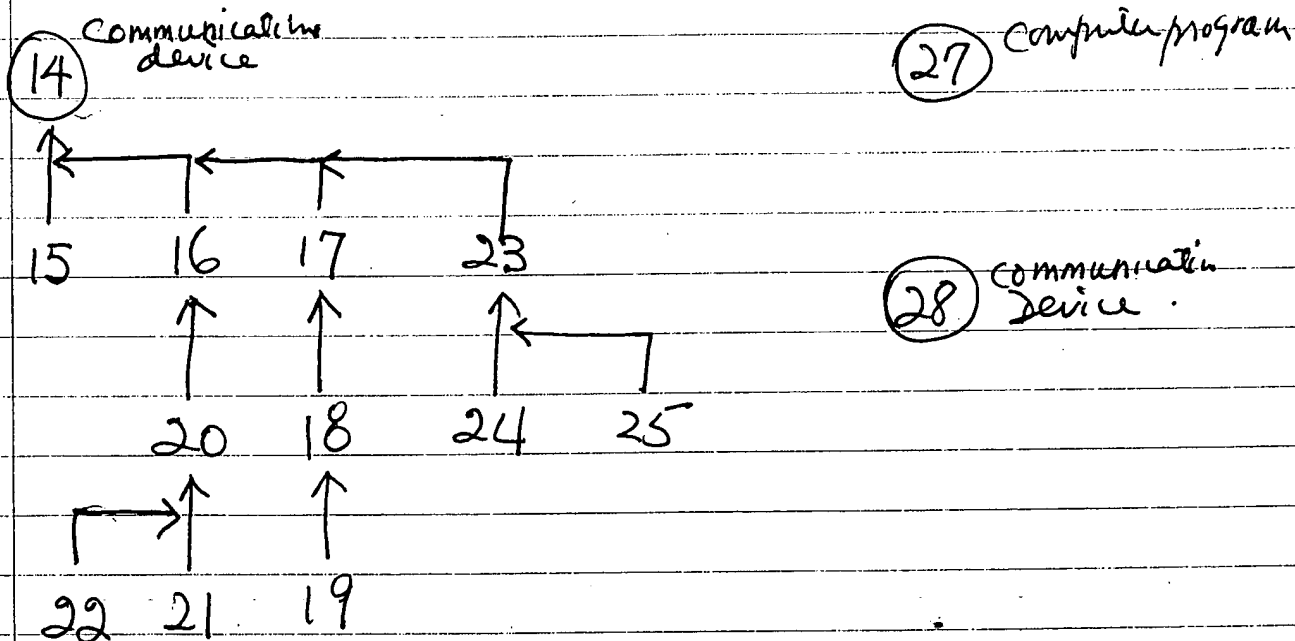 14 Communication
device
27 Computer program
15 16 17 23
28 communication
Device.
20 18 24 25
22 21 19